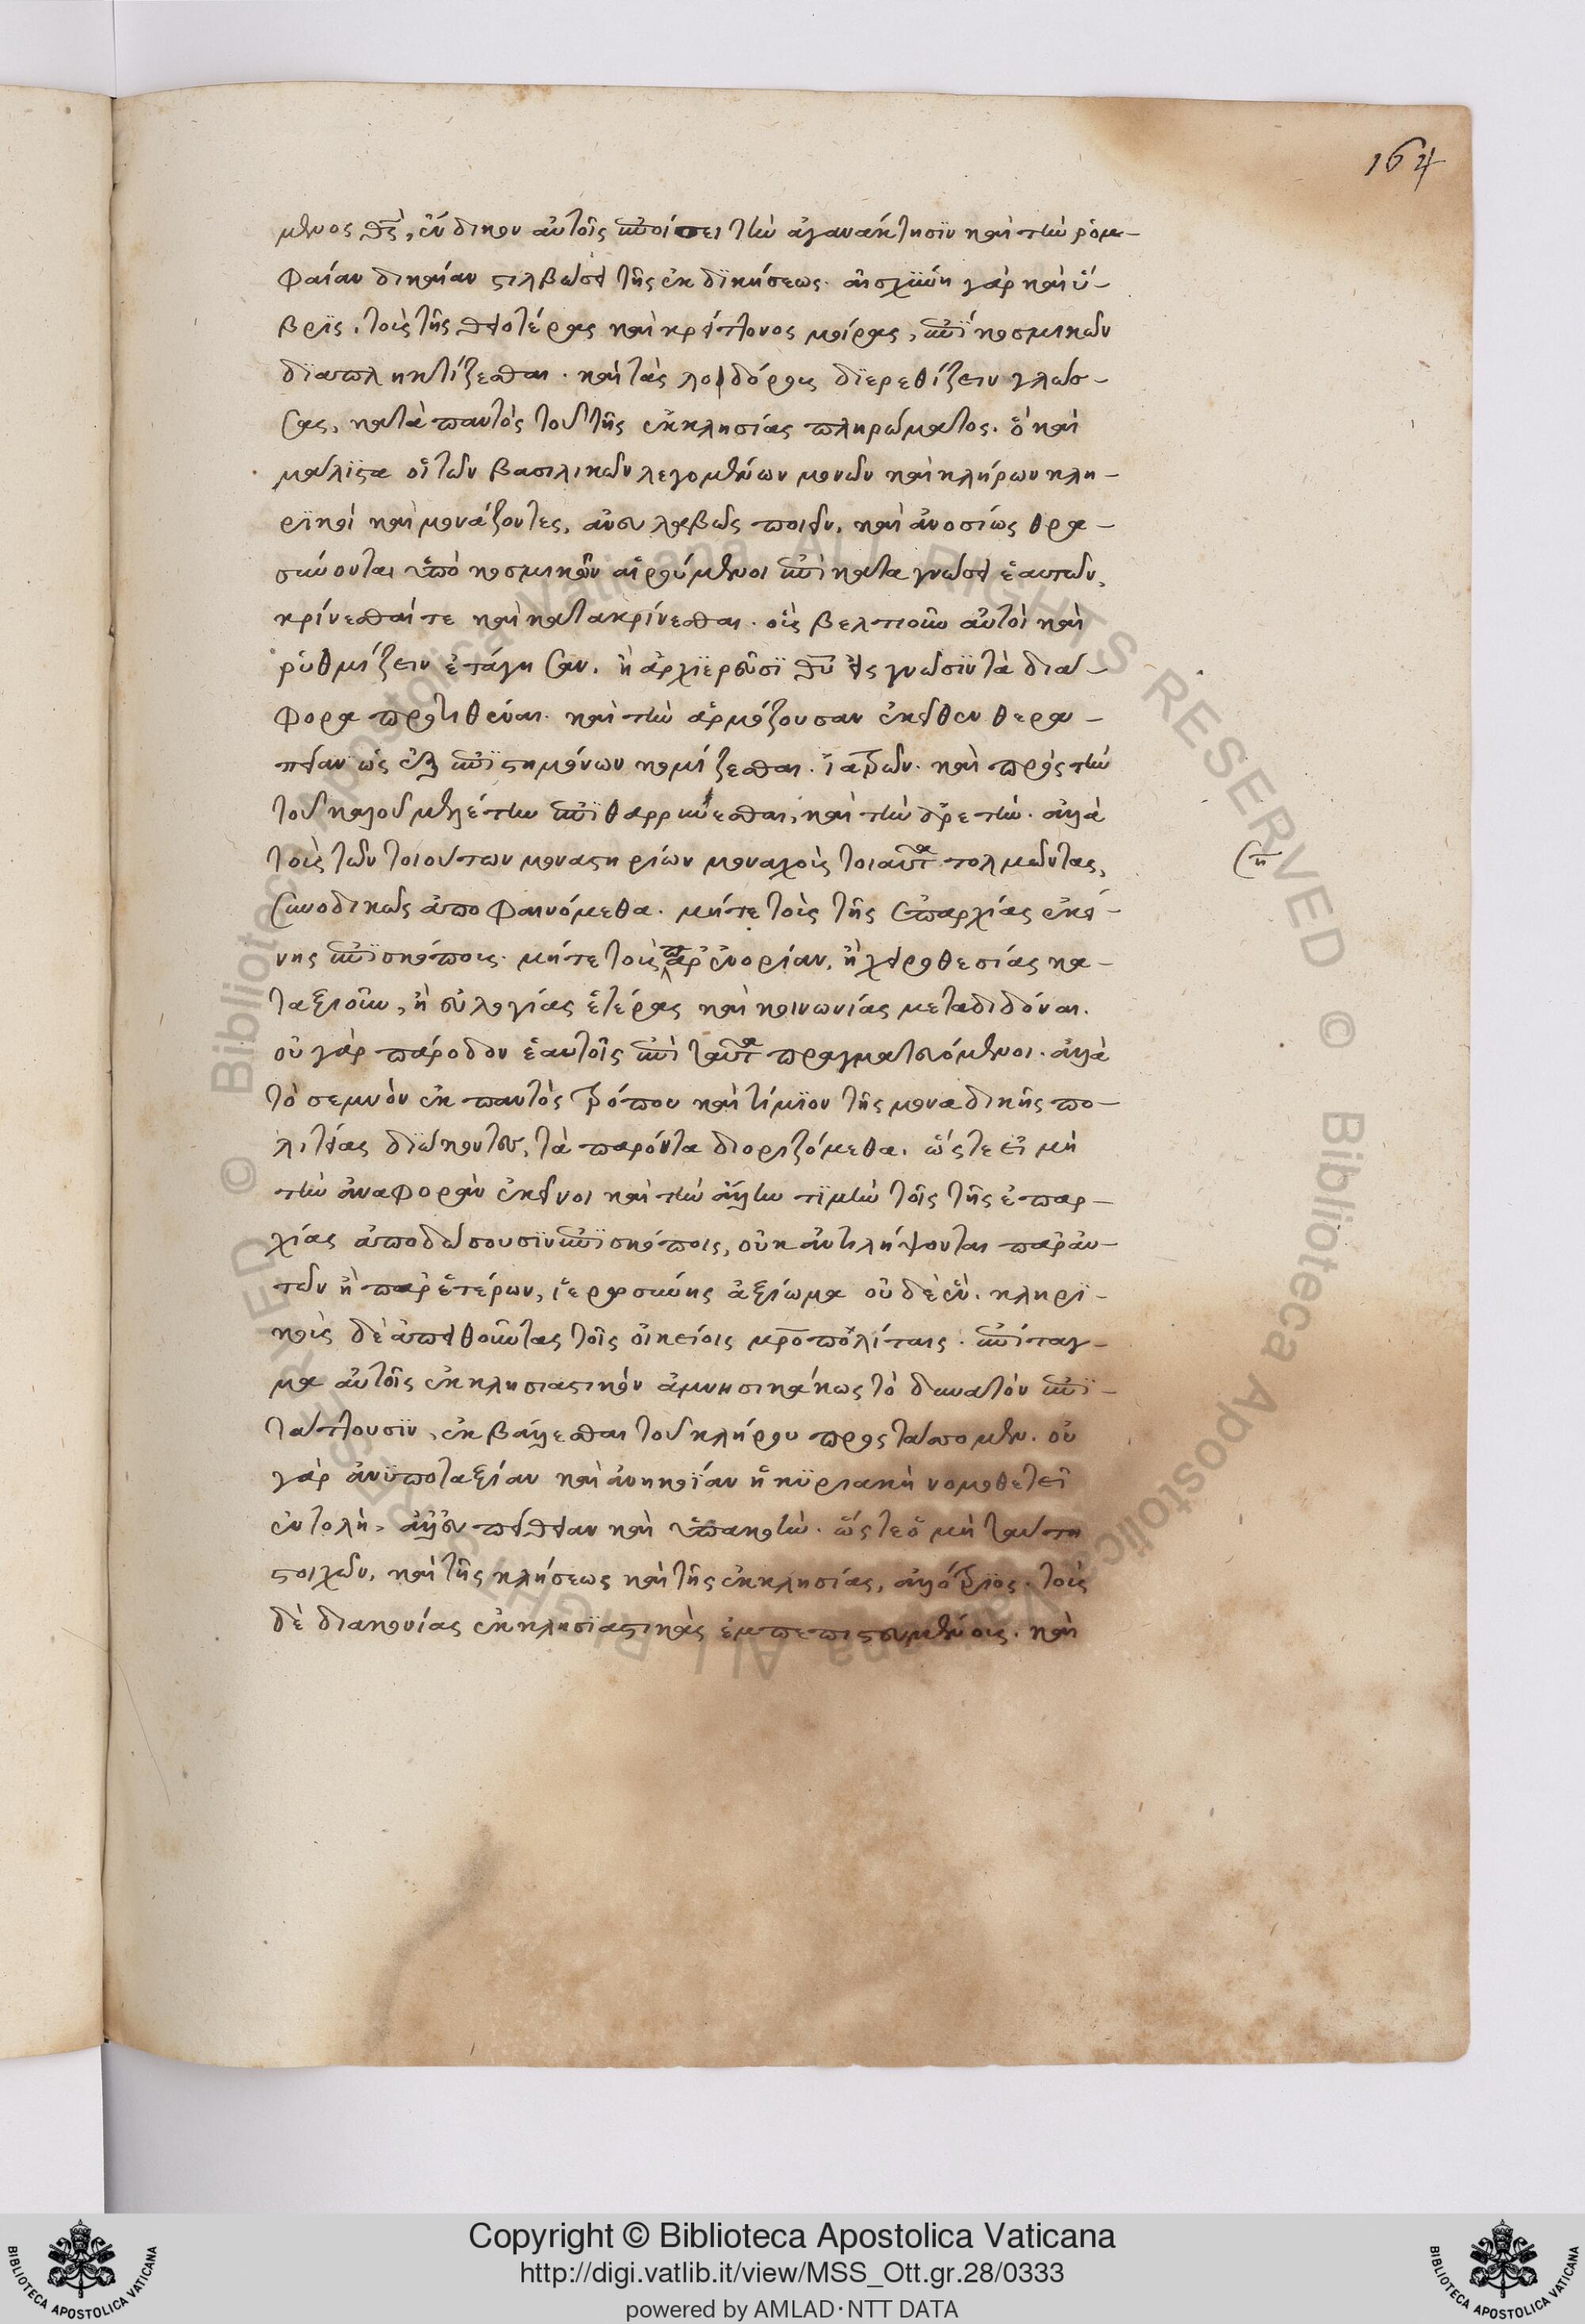 164
μενος θς, ἔνδικον αὐτοῖς ἐποίσει τὴν ἀγανάκτησϊν καὶ τὴν ῥομ-
φαίαν δικαίαν στιλβώσει τῆς ἐκδϊκήσεως. αἰσχύνη γὰρ καὶ ὕ-
βρϊς, τοὺς τῆς θειοτέρας καὶ κρείττονος μοίρας, ἐπϊ κοσμικῶν
δϊαπληκτίζεσθαι. καὶ τὰς λοιδόρους δϊερεθίζειν γλώσ-
σας, κατὰ παντὸς τοῦ τῆς ἐκκλησίας πληρώματος. ὃ καὶ
μάλϊστα οἱ τῶν βασιλικῶν λεγομένων μονῶν καὶ κλήρων κλη-
ρϊκοὶ καὶ μονάζοντες, ἀνευλαβῶς ποιεῖν, καὶ ἀνοσίως θρα-
σύνονται ὑπὸ κοσμικῶν αἱρούμενοι ἐπὶ καταγνώσει ἑαυτῶν,
κρίνεσθαί τε καὶ κατακρίνεσθαι. οὓς βελτιοῦν αὐτοὶ καὶ
ῥυθμίζειν ἐτάγησαν. ἢ ἀρχϊερεῦσϊ θυ εἰς γνῶσϊν τὰ διά-
φορα προτιθέναι. καὶ τὴν ἁρμόζουσαν ἐκεῖθεν θερα-
πείαν ὡς ἐξ ἐπϊστημόνων κομίζεσθαι. ἰατρῶν. καὶ πρὸς τὴν
τοῦ καλοῦ μελέτην ἐπϊθαρρύνεσθαι, καὶ τὴν ἀρετήν. ἀλλὰ
τοὺς τῶν τοιούτων μοναστηρίων μοναχοὺς τοιαῦτα τολμῶντας,
συνοδικῶς ἀποφαινόμεθα. μήτε τοὺς τῆς ἐπαρχίας ἐκεί-
νης ἐπϊσκόπους. μήτε τοὺς παρ' ἐνορίαν, ἢ χειροθεσίας κα-
ταξιοῦν, ἢ εὐλογίας ἑτέρας καὶ κοινωνίας μεταδιδόναι.
οὐ γὰρ πάροδον ἑαυτοῖς ἐπὶ ταῦτα πραγματευόμενοι. ἀλλὰ
τὸ σεμνὸν ἐκ παντὸς τρόπου καὶ τίμϊον τῆς μοναδικῆς πο-
λιτείας δϊώκοντες, τὰ παρόντα διοριζόμεθα. ὥστε εἰ μὴ
τὴν ἀναφορὰν ἐκεῖνοι καὶ τὴν ἄλλην τϊμὴν τοῖς τῆς ἐπαρ-
χίας ἀποδώσουσϊν ἐπϊσκόποις, οὐκ ἀντιλήψονται παρ' αὐ-
τῶν ἢ παρ' ἑτέρων, ἱερωσύνης ἀξίωμα οὐδὲ ἕν. κληρϊ-
κοὺς δὲ ἀπειθοῦντας τοῖς οἰκείοις μροπολίταις. ἐπίταγ-
μα αὐτοῖς ἐκκλησιαστικὸν ἀμνησικάκως τὸ δυνατὸν ἐπϊ-
τάττουσϊν, ἐκβάλλεσθαι τοῦ κλήρου προστάττομεν. οὐ
γὰρ ἀνϋποταξίαν καὶ ἀνηκοΐαν ἡ κϋριακὴ νομοθετεῖ
ἐντολὴ, ἀλλ' εὐπείθειαν καὶ ὑπακοήν. ὥστε ὁ μὴ ταύτη
στοιχῶν, καὶ τῆς κλήσεως καὶ τῆς ἐκκλησίας, ἀλλότρϊος. τοὺς
δὲ διακονίας ἐκκλησϊαστικὰς ἐμπεπιστευμένους. καὶ
Copyright © Biblioteca Apostolica Vaticana
http://digi.vatlib.it/view/MSS_Ott.gr.28/0333
powered by AMLAD·NTT DATA